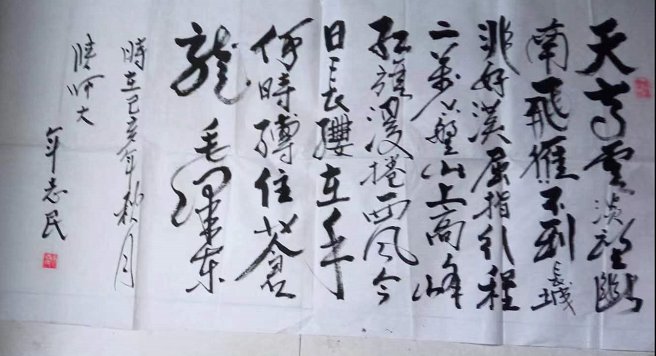 天高云淡望断
南飞雁不到长城
非好汉屈指行程
二万六盘山上高峰
红旗漫捲西风今
日长缨在手
何时缚住苍
龙 毛泽东
時在己亥年秋月
陕师大
年志民